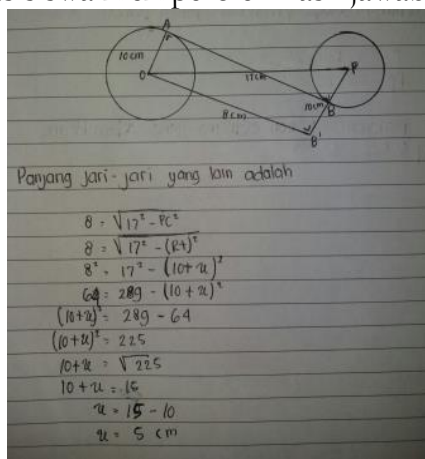 A
10 cm
O
17cm
P
10cm
B
8 cm
B'
Panjang jari-jari yang lain adalah
8 = √17² - PC²
8 = √17² - (R+)²
8² = 17² - (10+x)²
64 = 289 - (10+x)²
(10+x)² = 289 - 64
(10+x)² = 225
10+x = √225
10+x = 15
x = 15 - 10
x = 5 cm